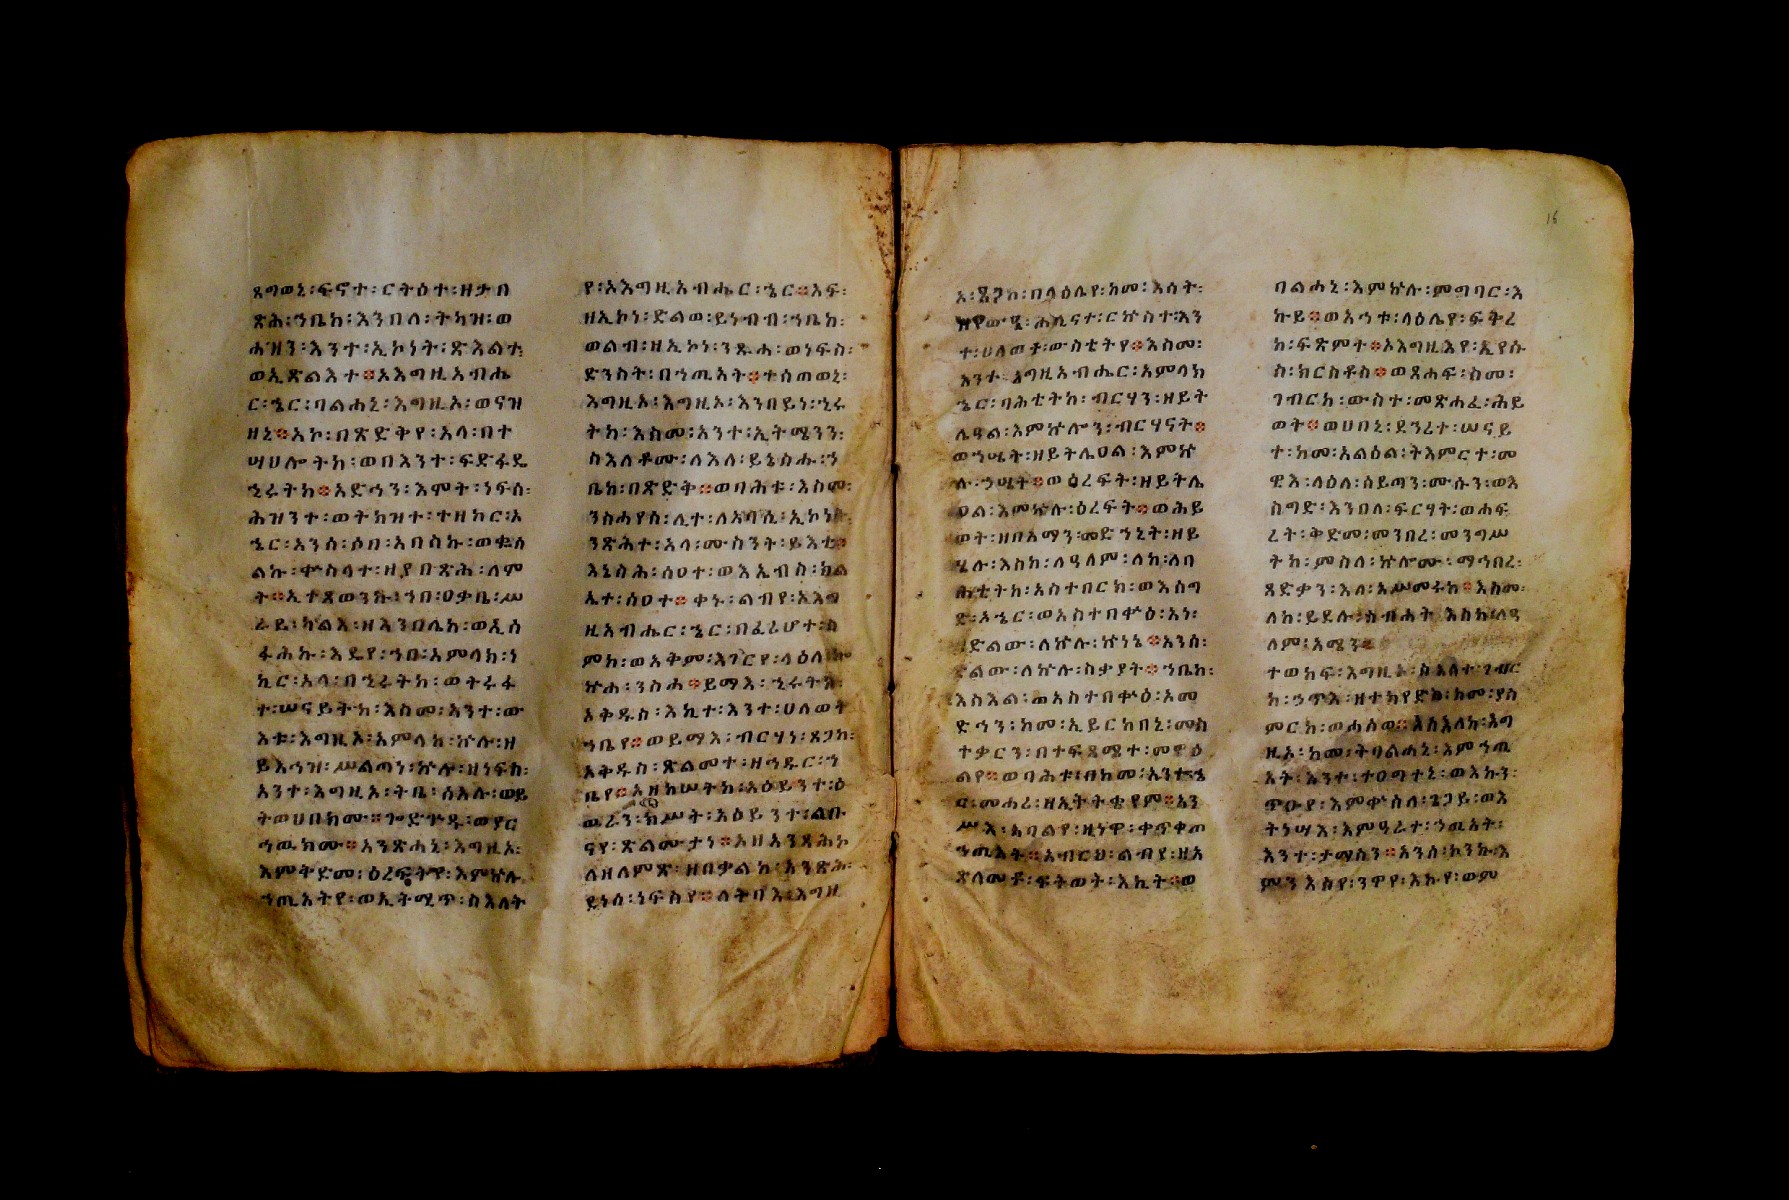 ጸግወኒ፡ፍኖተ፡ርትዕተ፡ዘታበ
ጽሕ፡ኀቤከ፡እንበለ፡ትካዝ፡ወ
ሐዝን፡እንተ፡ኢኮነት፡ጽልልተ፡
ወኢጽልእተ፨አእግዚአብሔ
ር፡ኄር፡ባልሐኒ፡እግዚኦ፡ወናዝ
ዘኒ፨አኮ፡በጽድቅየ፡አላ፡በተ
ሣህሎትከ፡ወበእንተ፡ፍድፋዴ
ኂሩትከ፨አድኅን፡እሞት፡ነፍሰ፡
ሕዝንተ፡ወትከዝተ፡ተዘከር፡አ
ኄር፡አንሰ፡ሶበ፡አበስኩ፡ወቈሰ
ልኩ፡ቍስላተ፡ዘያበጽሕ፡ለም
ት፨ኢተጸወንኩ፡ኀበ፡ዐቃቤ፡ሥ
ራይ፡ካልእ፡ዘእንበሌከ፡ወኢሰ
ፋሕኩ፡እዴየ፡ኀበ፡አምላክ፡ነ
ኪር፡አላ፡በኂሩትከ፡ወትሩፋ
ተ፡ሠናይትከ፡እስመ፡አንተ፡ው
እቱ፡እግዚኦ፡አምላከ፡ኵሉ፡ዘ
ይእኅዝ፡ሥልጣነ፡ኵሉ፡ዘነፍስ፡
አንተ፡እግዚኦ፡ትቤ፡ሰአሉ፡ወይ
ትወሀበክሙ፨ጐድጕዱ፡ወያር
ኅዉክሙ፨አንጽሐኒ፡እግዚኦ፡
እምቅድመ፡ዕረፍትየ፡እምኵሉ
ኀጢአትየ፡ወኢትሚጥ፡ስእለት
የ፡አእግዚአብሔር፡ኄር፨አፍ፡
ዘኢኮነ፡ድልወ፡ይነብብ፡ኀቤከ፡
ወልብ፡ዘኢኮነ፡ንጹሐ፡ወነፍስ፡
ድንስት፡በኀጢአት፨ተሰጠወኒ፡
እግዚኦ፡እግዚኦ፡እንበይነ፡ኂሩ
ትከ፡እስመ፡አንተ፡ኢትሜንን፡
ስእለቶሙ፡ለእለ፡ይኔስሑ፡ኀ
ቤከ፡በጽድቅ፨ወባሕቱ፡እስመ፡
ንስሓየሰ፡ሊተ፡ለአባሲ፡ኢኮነት፡
ንጽሕተ፡አላ፡ሙስንት፡ይእቲ፨
እኔስሕ፡ሰዐተ፡ወእኤብስ፡ክል
ኤተ፡ሰዐተ፨ቀኑ፡ልብየ፡አእግ
ዚአብሔር፡ኄር፡በፈሪሆተ፡ስ
ምከ፡ወአቅም፡እገርየ፡ላዕለ፡ኰ
ኵሐ፡ንስሐ፨ይማእ፡ኂሩትከ፡
አቅዱስ፡እኪተ፡እንተ፡ሀለወት
ኀቤየ፨ወይማእ፡ብርሃነ፡ጸጋከ፡
አቅዱስ፡ጽልመተ፡ዘኀዱር፡ኀ
ቤየ፨አዘከሠትከ፡አዕይንተ፡ዕ
ዉራን፡ክሥት፡አዕይንተ፡ልቡ
ናየ፡ጽልሙታነ፨አዘአንጻሕኮ
ለዘለምጽ፡ዘበቃልከ፡አንጽሕ፡
ደነሰ፡ነፍስየ፨ለትባእ፡እግዚ
አ፡ጸጋከ፡በላዕሌየ፡ከመ፡እሳት፡
ተ፡ሀለወቶ፡ውስቴትየ፨እስመ፡
አንተ፡እግዚአብሔር፡አምላክ
ኄር፡ባሕቲትከ፡ብርሃን፡ዘይት
ሌዓል፡እምኵሎን፡ብርሃናት፨
ወኀሤት፡ዘይትሌዐል፡እምኵ
ሉ፡ኃሤት፨ወዕረፍት፡ዘይትሌ
ዐል፡እምኵሉ፡ዕረፍት፨ወሕይ
ወት፡ዘበአማን፡መድኀኒት፡ዘይ
ሄሉ፡እስከ፡ለዓለም፡ለከ፡ለባ
ሕቲትከ፡አስተበርክ፡ወእስግ
ድ፡አኄር፡ወአስተበቍዕ፡አነ፡
ድልው፡ለኵሉ፡ኵነኔ፨አንሰ፡
ድልው፡ለኵሉ፡ስቃያት፨ኀቤከ፡
እስእል፡ወአስተበቍዕ፡አመ
ድኅን፡ከመ፡ኢይርከበኒ፡መስ
ተቃርን፡በተፍጻሜተ፡መዋዕ
ልየ፨ወባሕቱ፡በከመ፡አንተ፡ኄ
ር፡መሓሪ፡ዘኢትትቄየም፨አን
ሥእ፡አባልየ፡ዚነዋ፡ቀጥቀጦ
ኀጢአት፨አብርህ፡ልብየ፡ዘአ
ጽለመቶ፡ፍትወት፡እኪት፨ወ
ባልሐኒ፡እምኵሉ፡ምግባር፡እ
ኩይ፨ወአኀቱ፡ላዕሌየ፡ፍቅረ
ከ፡ፍጽምት፨አእግዚእየ፡ኢየሱ
ስ፡ክርስቶስ፨ወጸሐፍ፡ስመ፡
ገብርከ፡ውስተ፡መጽሐፈ፡ሕይ
ወት፨ወሀበኒ፡ደኃሪተ፡ሠናይ
ተ፡ከመ፡አልዕል፡ትእምርተ፡መ
ዊእ፡ላዕለ፡ሰይጣን፡ሙሱን፡ወእ
ስግድ፡እንበለ፡ፍርሃት፡ወሐፍ
ረት፡ቅድመ፡መንበረ፡መንግሥ
ትከ፡ምስለ፡ኵሎሙ፡ማኅበረ፡
ጻድቃን፡እለ፡አሥመሩከ፨እስመ፡
ለከ፡ይደሉ፡ስብሐት፡እስከ፡ለዓ
ለም፡አሜን፨
ተወከፍ፡እግዚኦ፡ስእለተ፡ገብር
ከ፡ኃጥእ፡ዘተከየድከ፡ከመ፡ያስ
ዚኦ፡ከመ፡ትባልሐኒ፡እምኀጢ
አት፡እንተ፡ተዐግተኒ፡ወእኩን፡
ጥዑየ፡እምቍስለ፡ጌጋይ፡ወእ
ትነሣእ፡እምዓራተ፡ኀጢአት፡
እንተ፡ታማስን፨አንሰ፡ኮንኩ፡እ
ምንእስየ፡ንዋየ፡እኩየ፡ወም